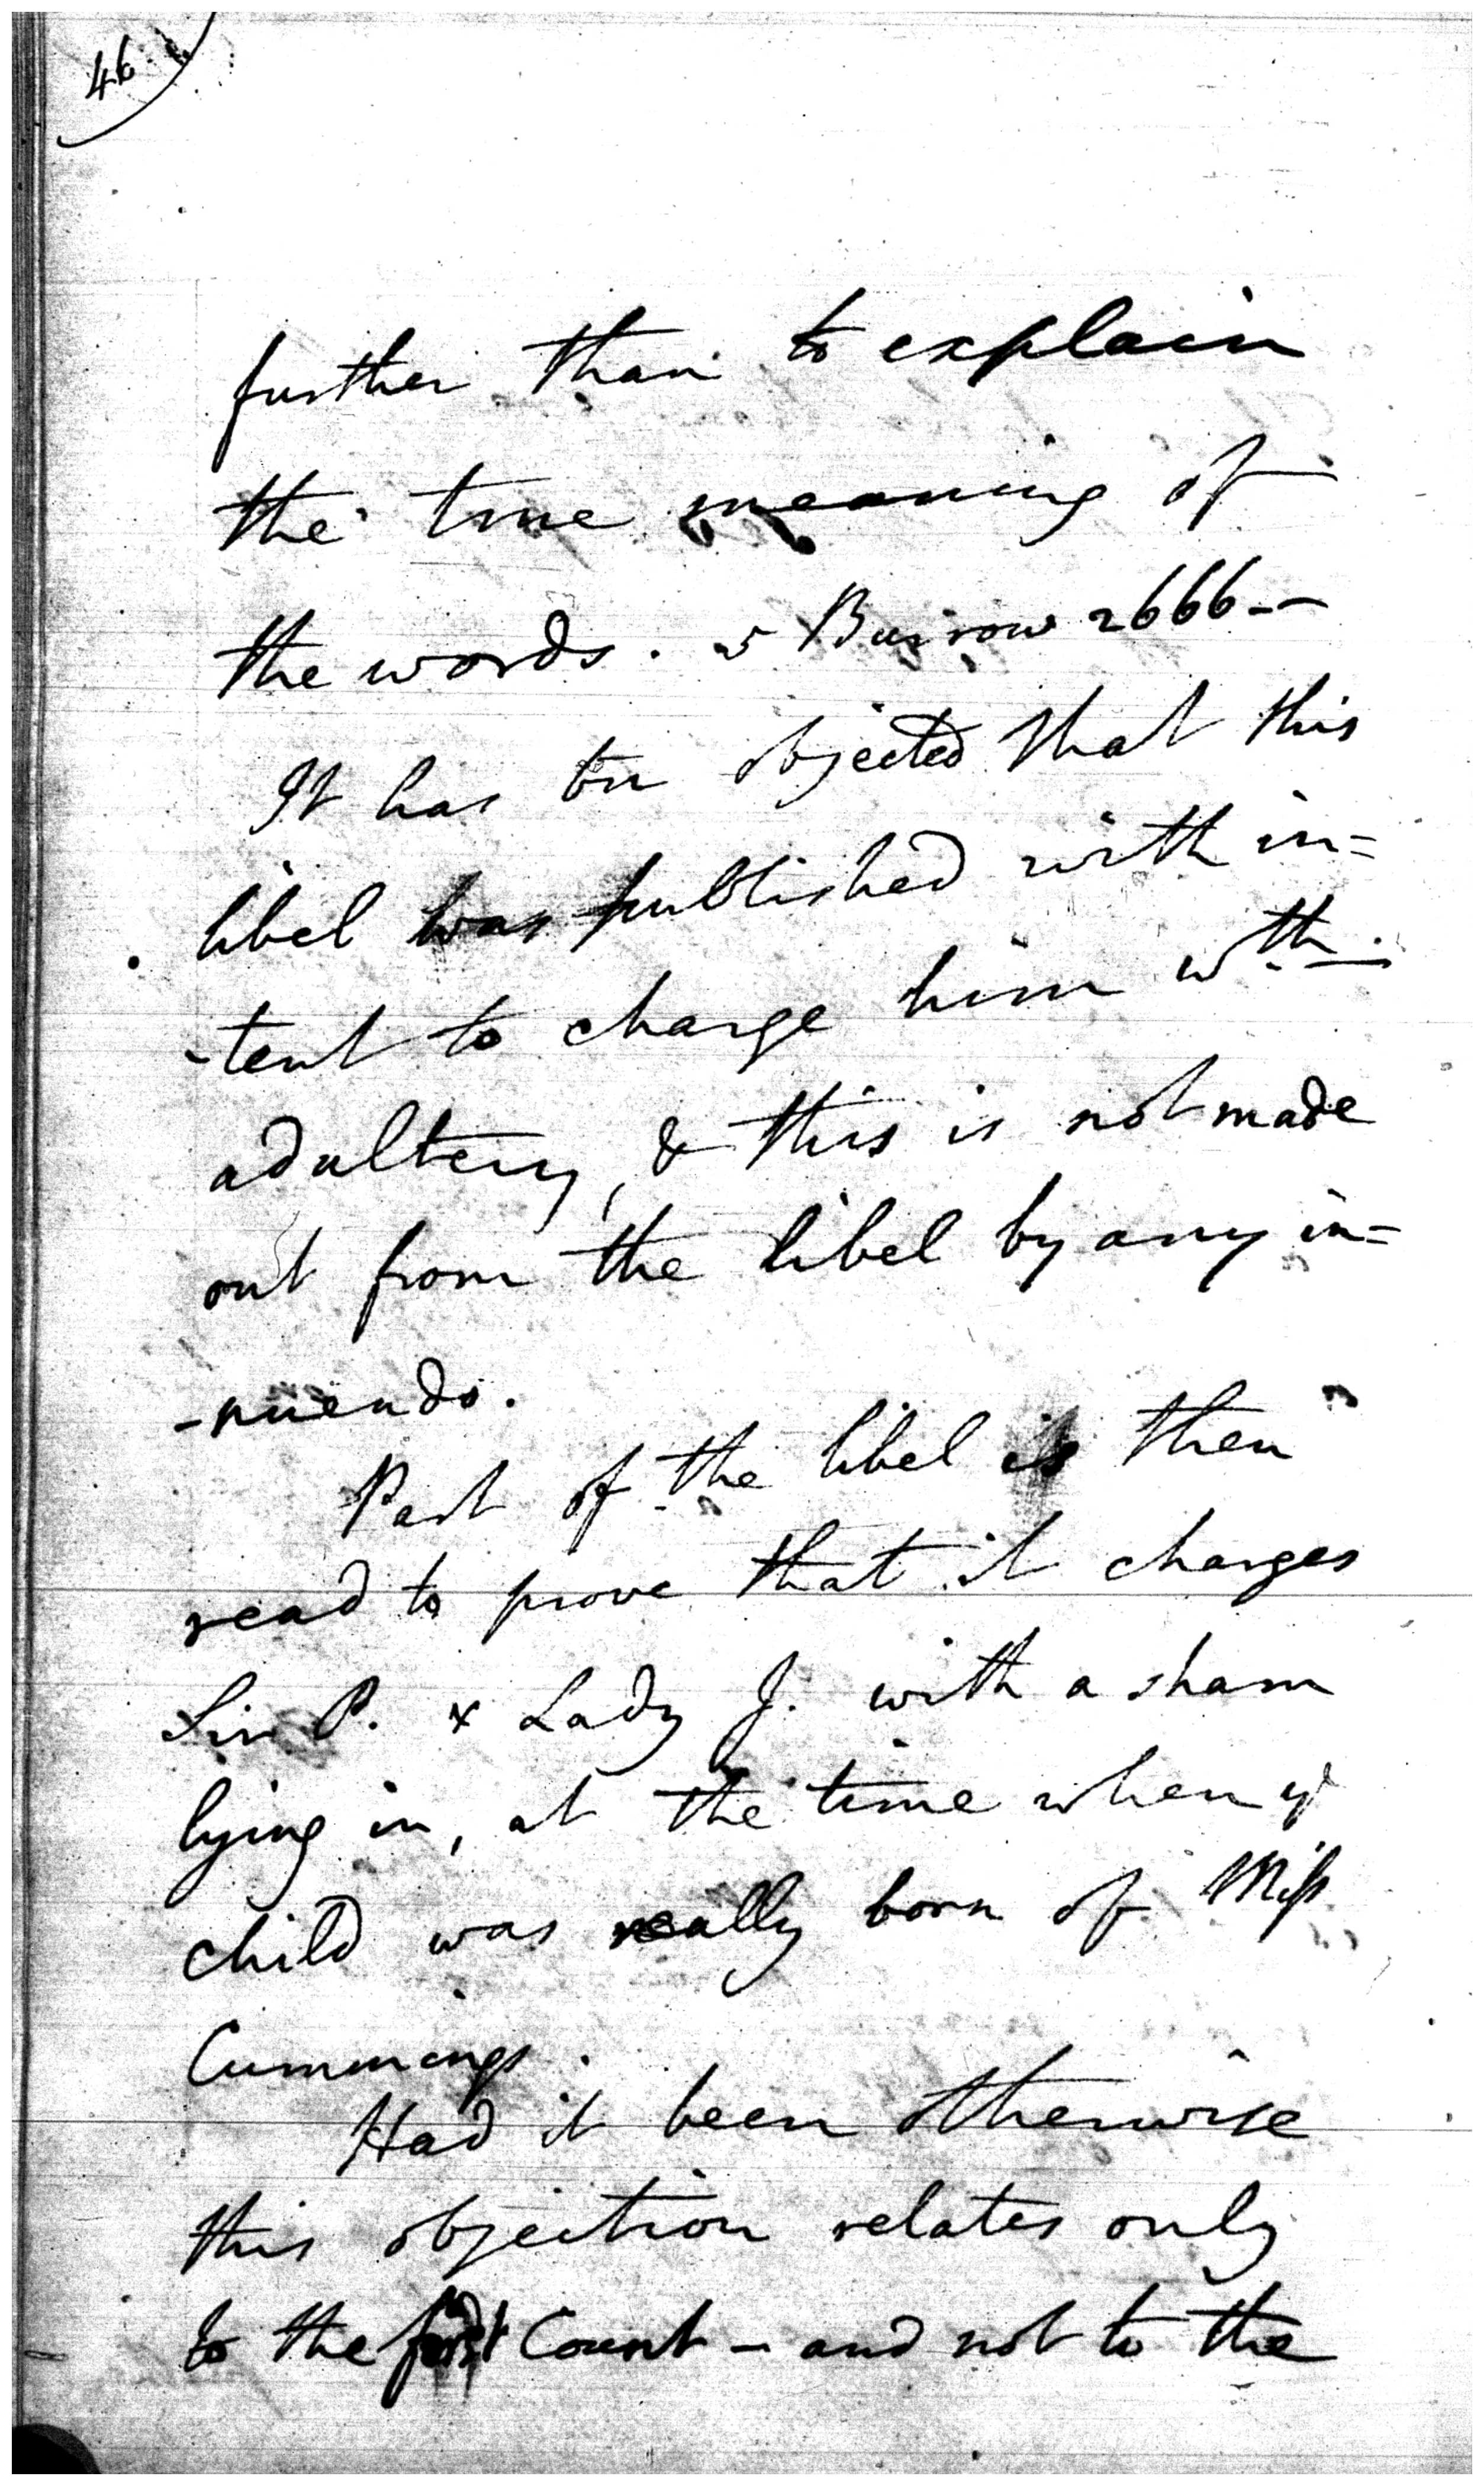 46
further than to explain
the true meaning of
the words. 5 Burrow 2666 --
It has bn objected that this
libel was published with in=
-tent to charge him wth.
adultery, & this is not made
out from the libel by any in=
-nuendo.
Part of the libel is then
read to prove that it charges
Sir P. & Lady J. with a sham
lying in, at the time when ye
child was really born of Miss
Cummings.
Had it been otherwise
this objection relates only
to the first Count - and not to the